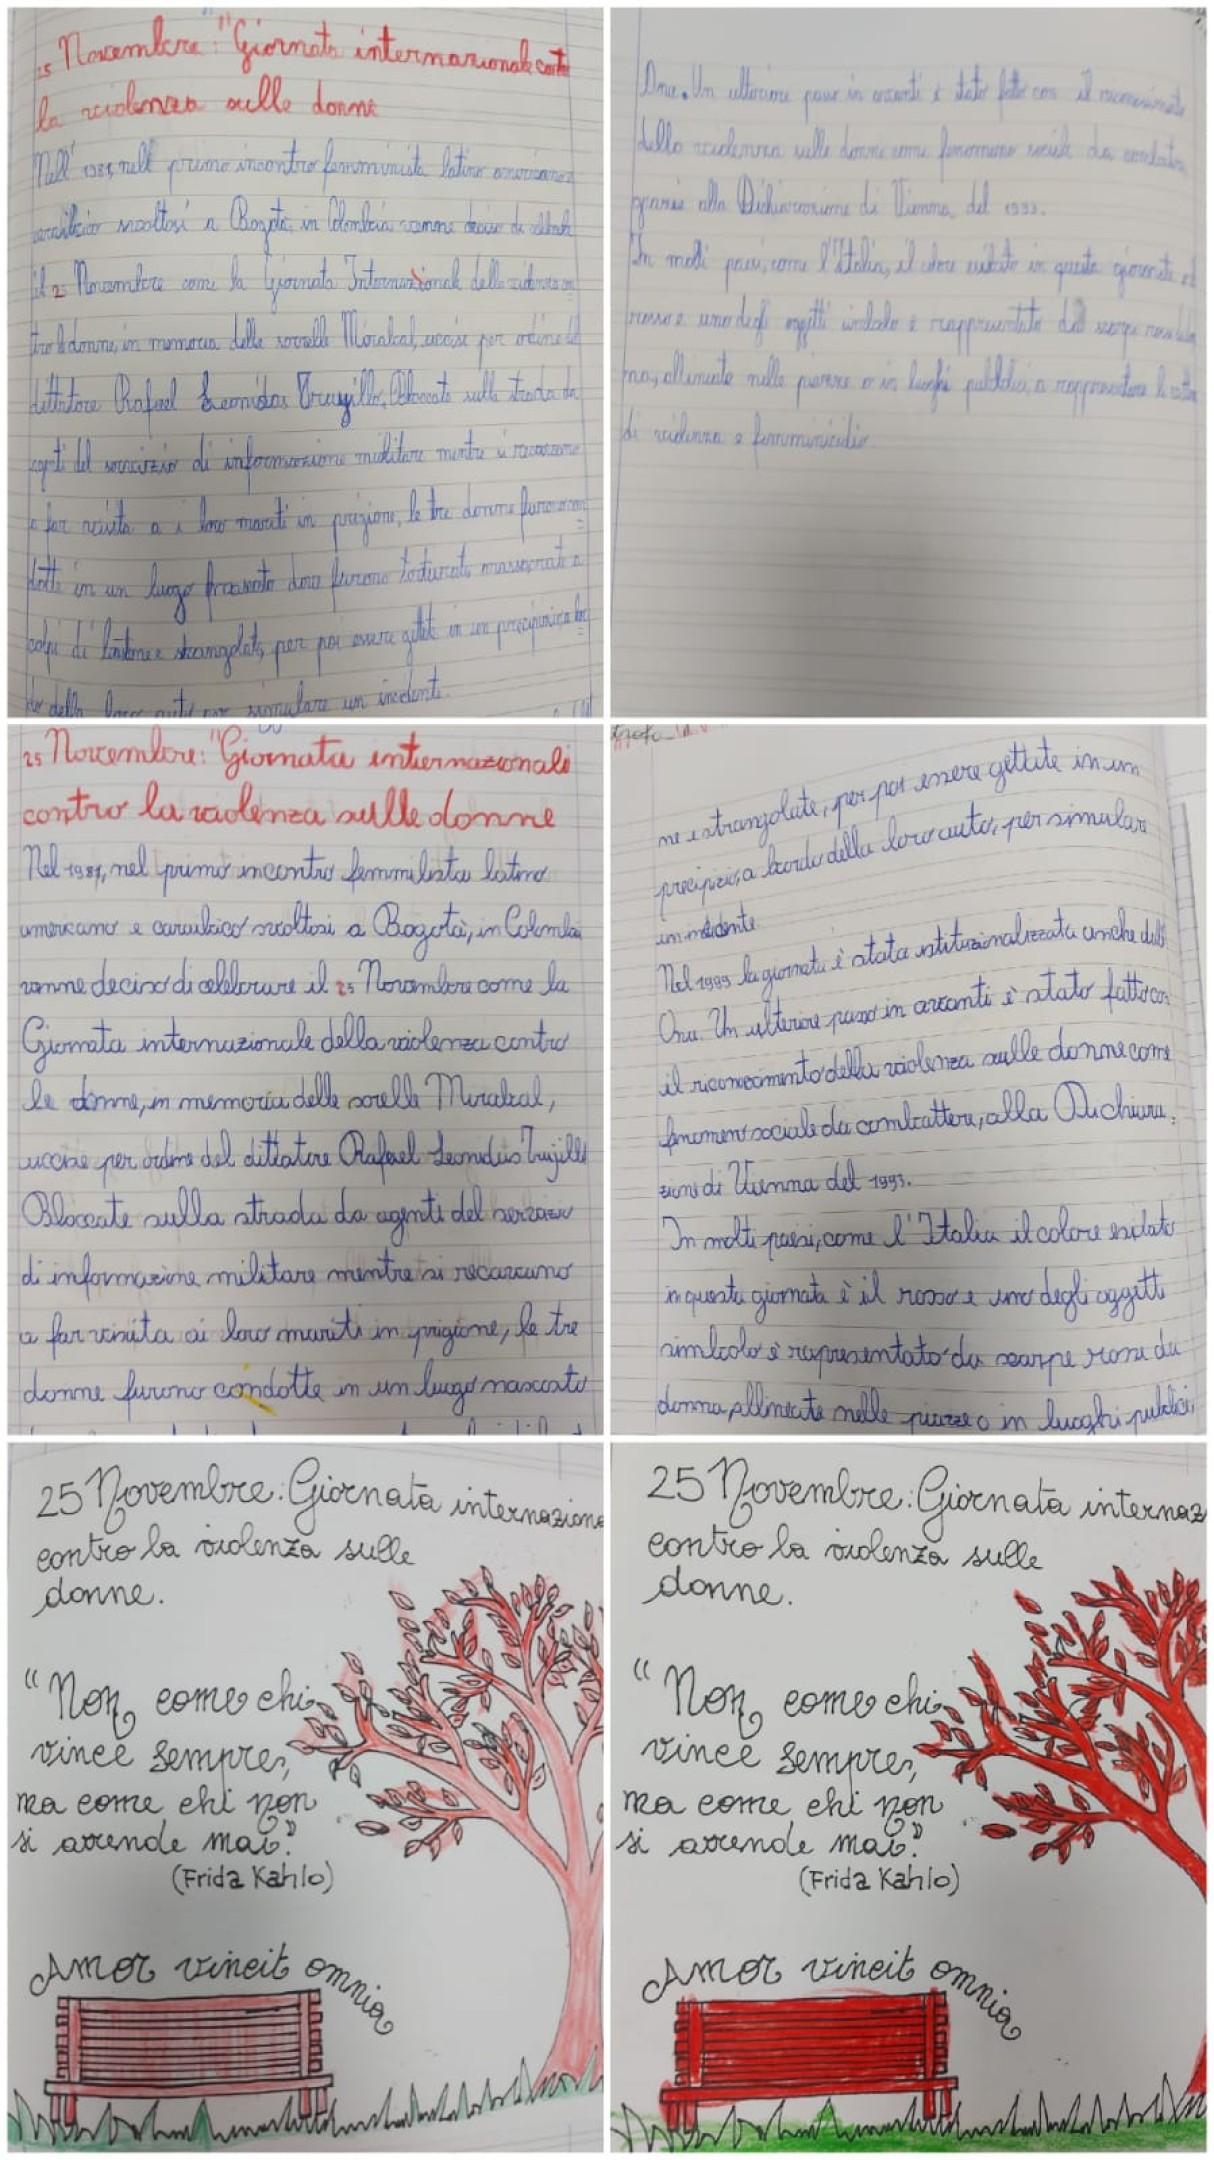 25 Novembre: "Giornata internazionale contro
la violenza sulle donne
Nell' 1981, nell primo incontro femminista latino americano
svoltosi a Bogotà, in Colombia venne deciso di
il 25 Novembre come la Giornata Internazional della violenza con
tro le donne, in memoria delle sorelle Mirabal, uccise per ordine del
dittatore Rafael Leonidas Trugillo, Bloccate sulla strada da
agenti del servizio di informazione militare mentre si recavano
a far visita a i loro mariti in prigione, le tre donne furono con
dotte in un luogo dove furono torturate, massacrate a
colpi di bastone e strangolate, per poi essere gettate in un precipizio, a bor
do della loro auto, per simulare un incidente.
Onu. Un ulteriore passo in avanti è stato fatto con il riconoscimento
della violenza sulle donne come fenomeno sociale da combattere,
grazie alla Dichiarazione di Vienna, del 1993.
In molti paesi, come l'Italia, il colore in questa giornata è il
rosso e uno degli oggetti è rappresentato da scarpe rosse da
na, allineate nelle piazze o in luoghi pubblici, a rappresentare le vittime
di violenza e femminicidio.
25 Novembre: "Giornata internazionali
contro la violenza sulle donne
Nel 1981, nel primo incontro femmilista latino
americano e caraibico svoltosi a Bogotà, in Colombia
venne deciso di celebrare il 25 Novembre come la
Giornata internazionale della violenza contro
le donne, in memoria delle sorelle Mirabal,
uccise per ordine del dittatore Rafael Leonidas Trujillo
Bloccate sulla strada da agenti del servizio
di informazione militare mentre si recavano
a far visita ai loro mariti in prigione, le tre
donne furono condotte in un luogo nascosto
ne e strangolate, per poi essere gettate in un
precipizio, a bordo della loro auto, per simulare
un incidente.
Nel 1999 la giornata è stata istituzionalizzata anche dall'
Onu. Un ulteriore passo in avanti è stato fatto con
il riconoscimento della violenza sulle donne come
fenomeno sociale da combattere, alla Dichiara-
zione di Vienna del 1993.
In molti paesi, come l'Italia il colore esibito
in questa giornata è il rosso e uno degli oggetti
simbolo è rapresentato da scarpe rosse da
donna, allineate nelle piazze o in luoghi pubblici,
25 Novembre: Giornata internaziona
contro la violenza sulle
donne.
"Non come chi
vince sempre,
ma come chi non
si arrende mai."
(Frida Kahlo)
Amor vincit omnia
25 Novembre: Giornata internaz
contro la violenza sulle
donne.
"Non come chi
vince sempre,
ma come chi non
si arrende mai."
(Frida Kahlo)
Amor vincit omnia